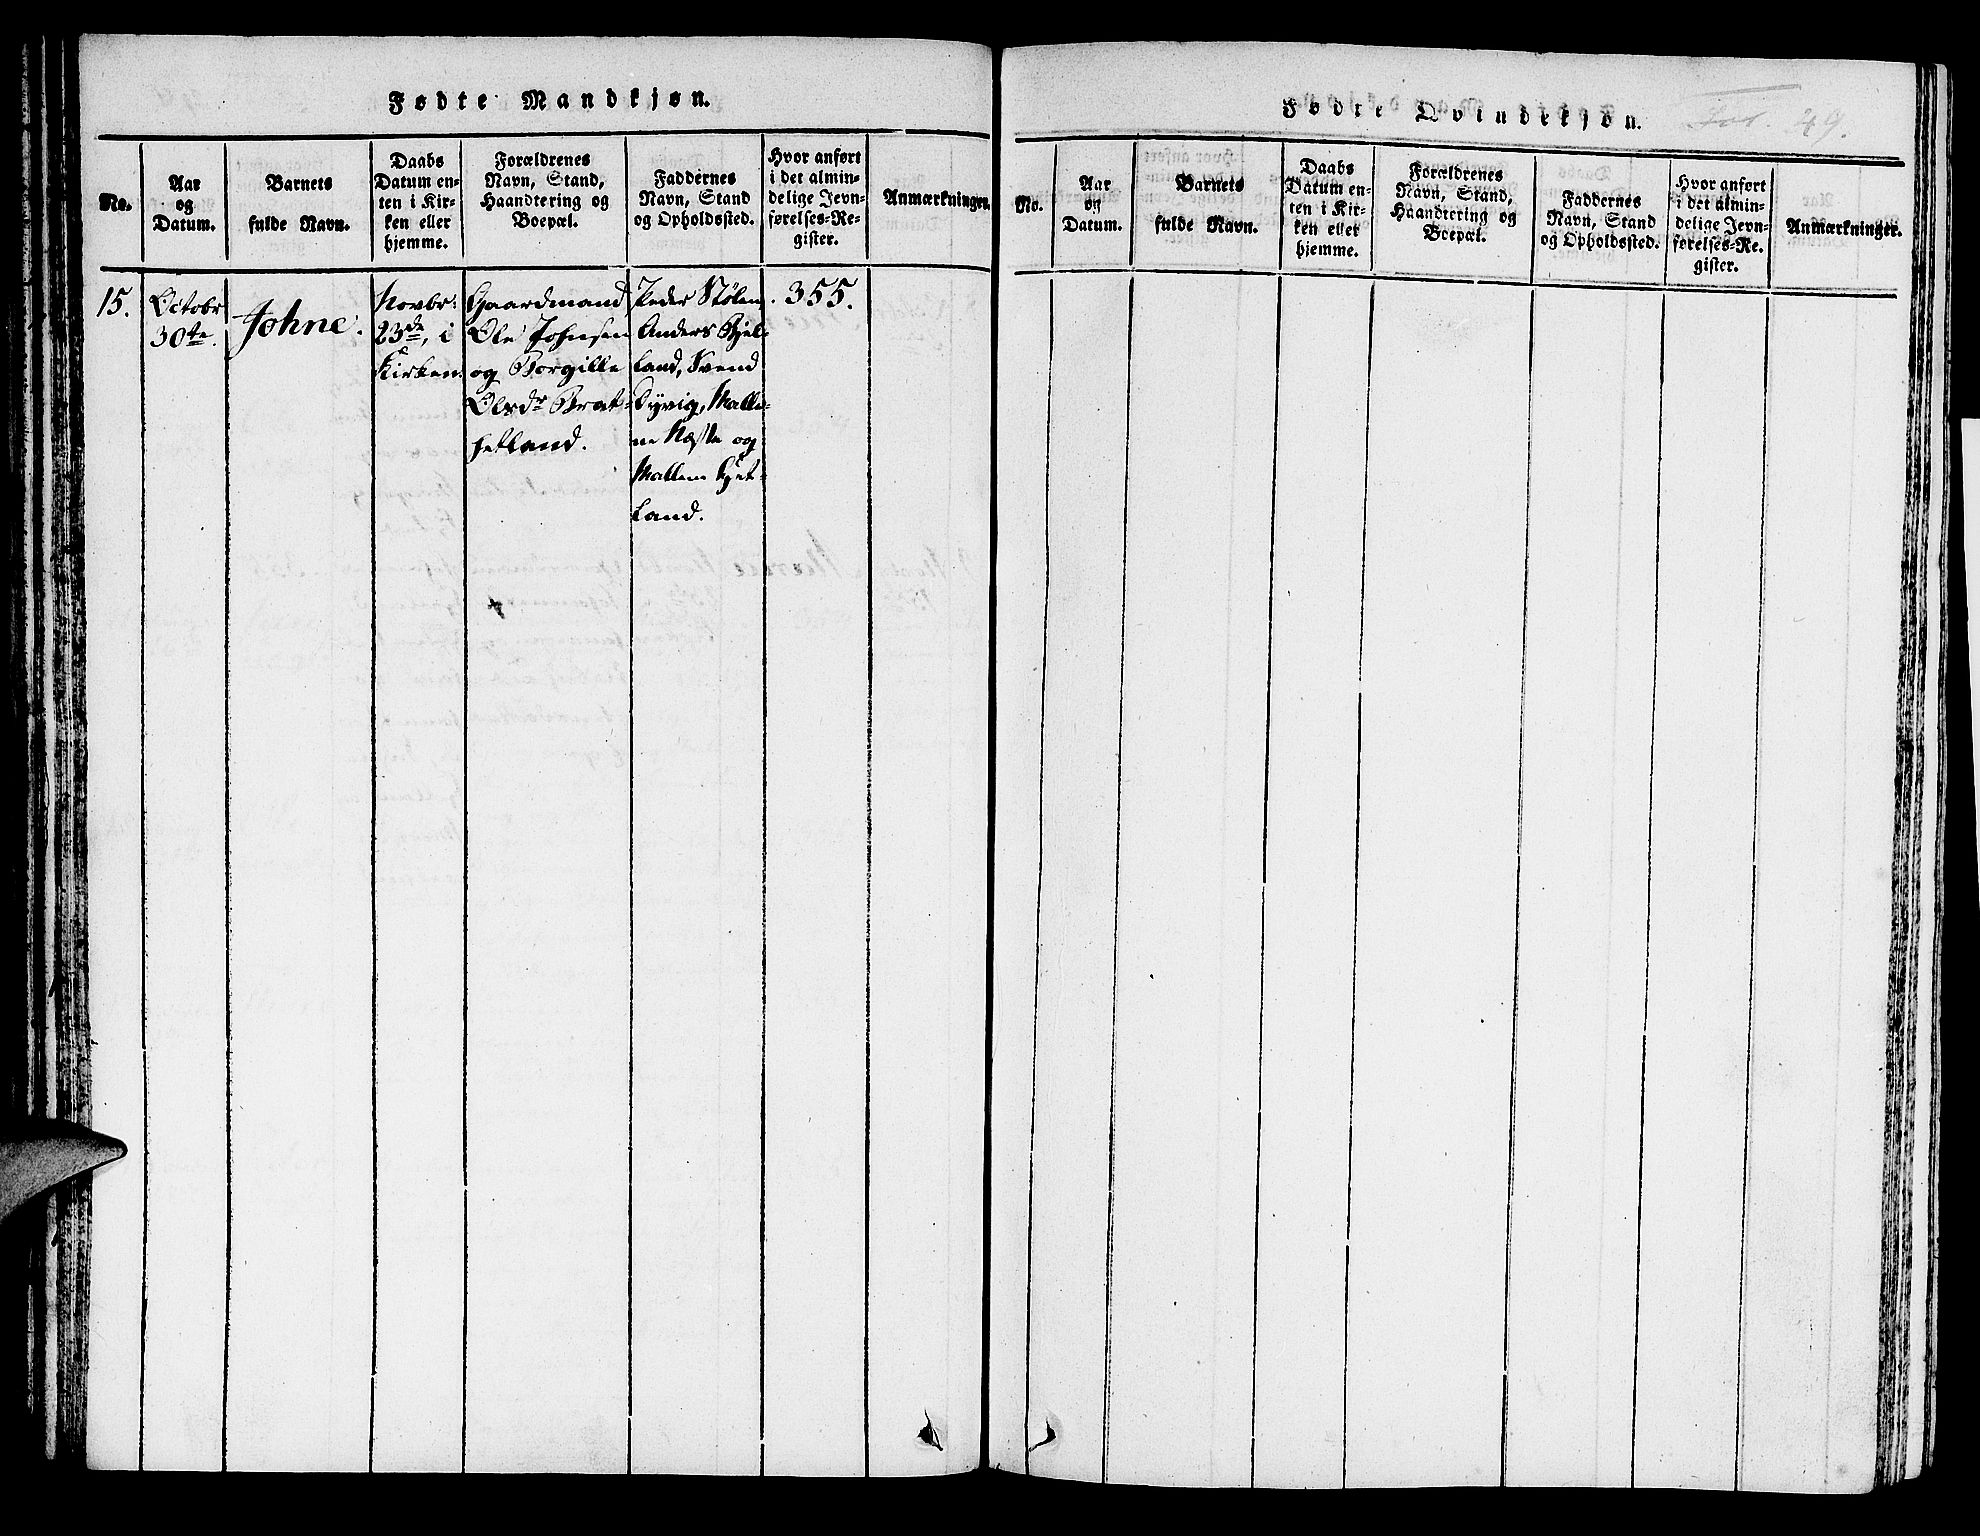 Fødte Mandkjøn.
No.
Aar
og
Datum.
Barnets
fulde Navn.
Daabs
Datum en-
ten i Kir-
ken eller
hjemme.
Forældrenes
Navn, Stand,
Haandtering og
Boepæl.
Faddernes
Navn, Stand
og Opholdssted.
Hvor anført
i det almin-
delige Jevn-
førelses-Re-
gister.
Anmærkninger.
15.
Octobr
30te.
Johne.
Novbr:
23de, i
Kirken.
Gaardmand
Ole Johnsen
og Borgille
Olsdr Brat-
hetland.
Peder Stølen
Anders Bjel-
land, Svend
Tyvig, Malle-
ne Næste og
Mallene Hjet-
land.
355.
Fødte Qvindekjøn.
Fol. 49.
No.
Aar
og
Datum.
Barnets
fulde Navn.
Daabs
Datum en-
ten i Kir-
ken eller
hjemme.
Forældrenes
Navn, Stand,
Haandtering og
Boepæl.
Faddernes
Navn, Stand
og Opholdssted.
Hvor anført
i det almin-
delige Jevn-
førelses-Re-
gister.
Anmærkninger.